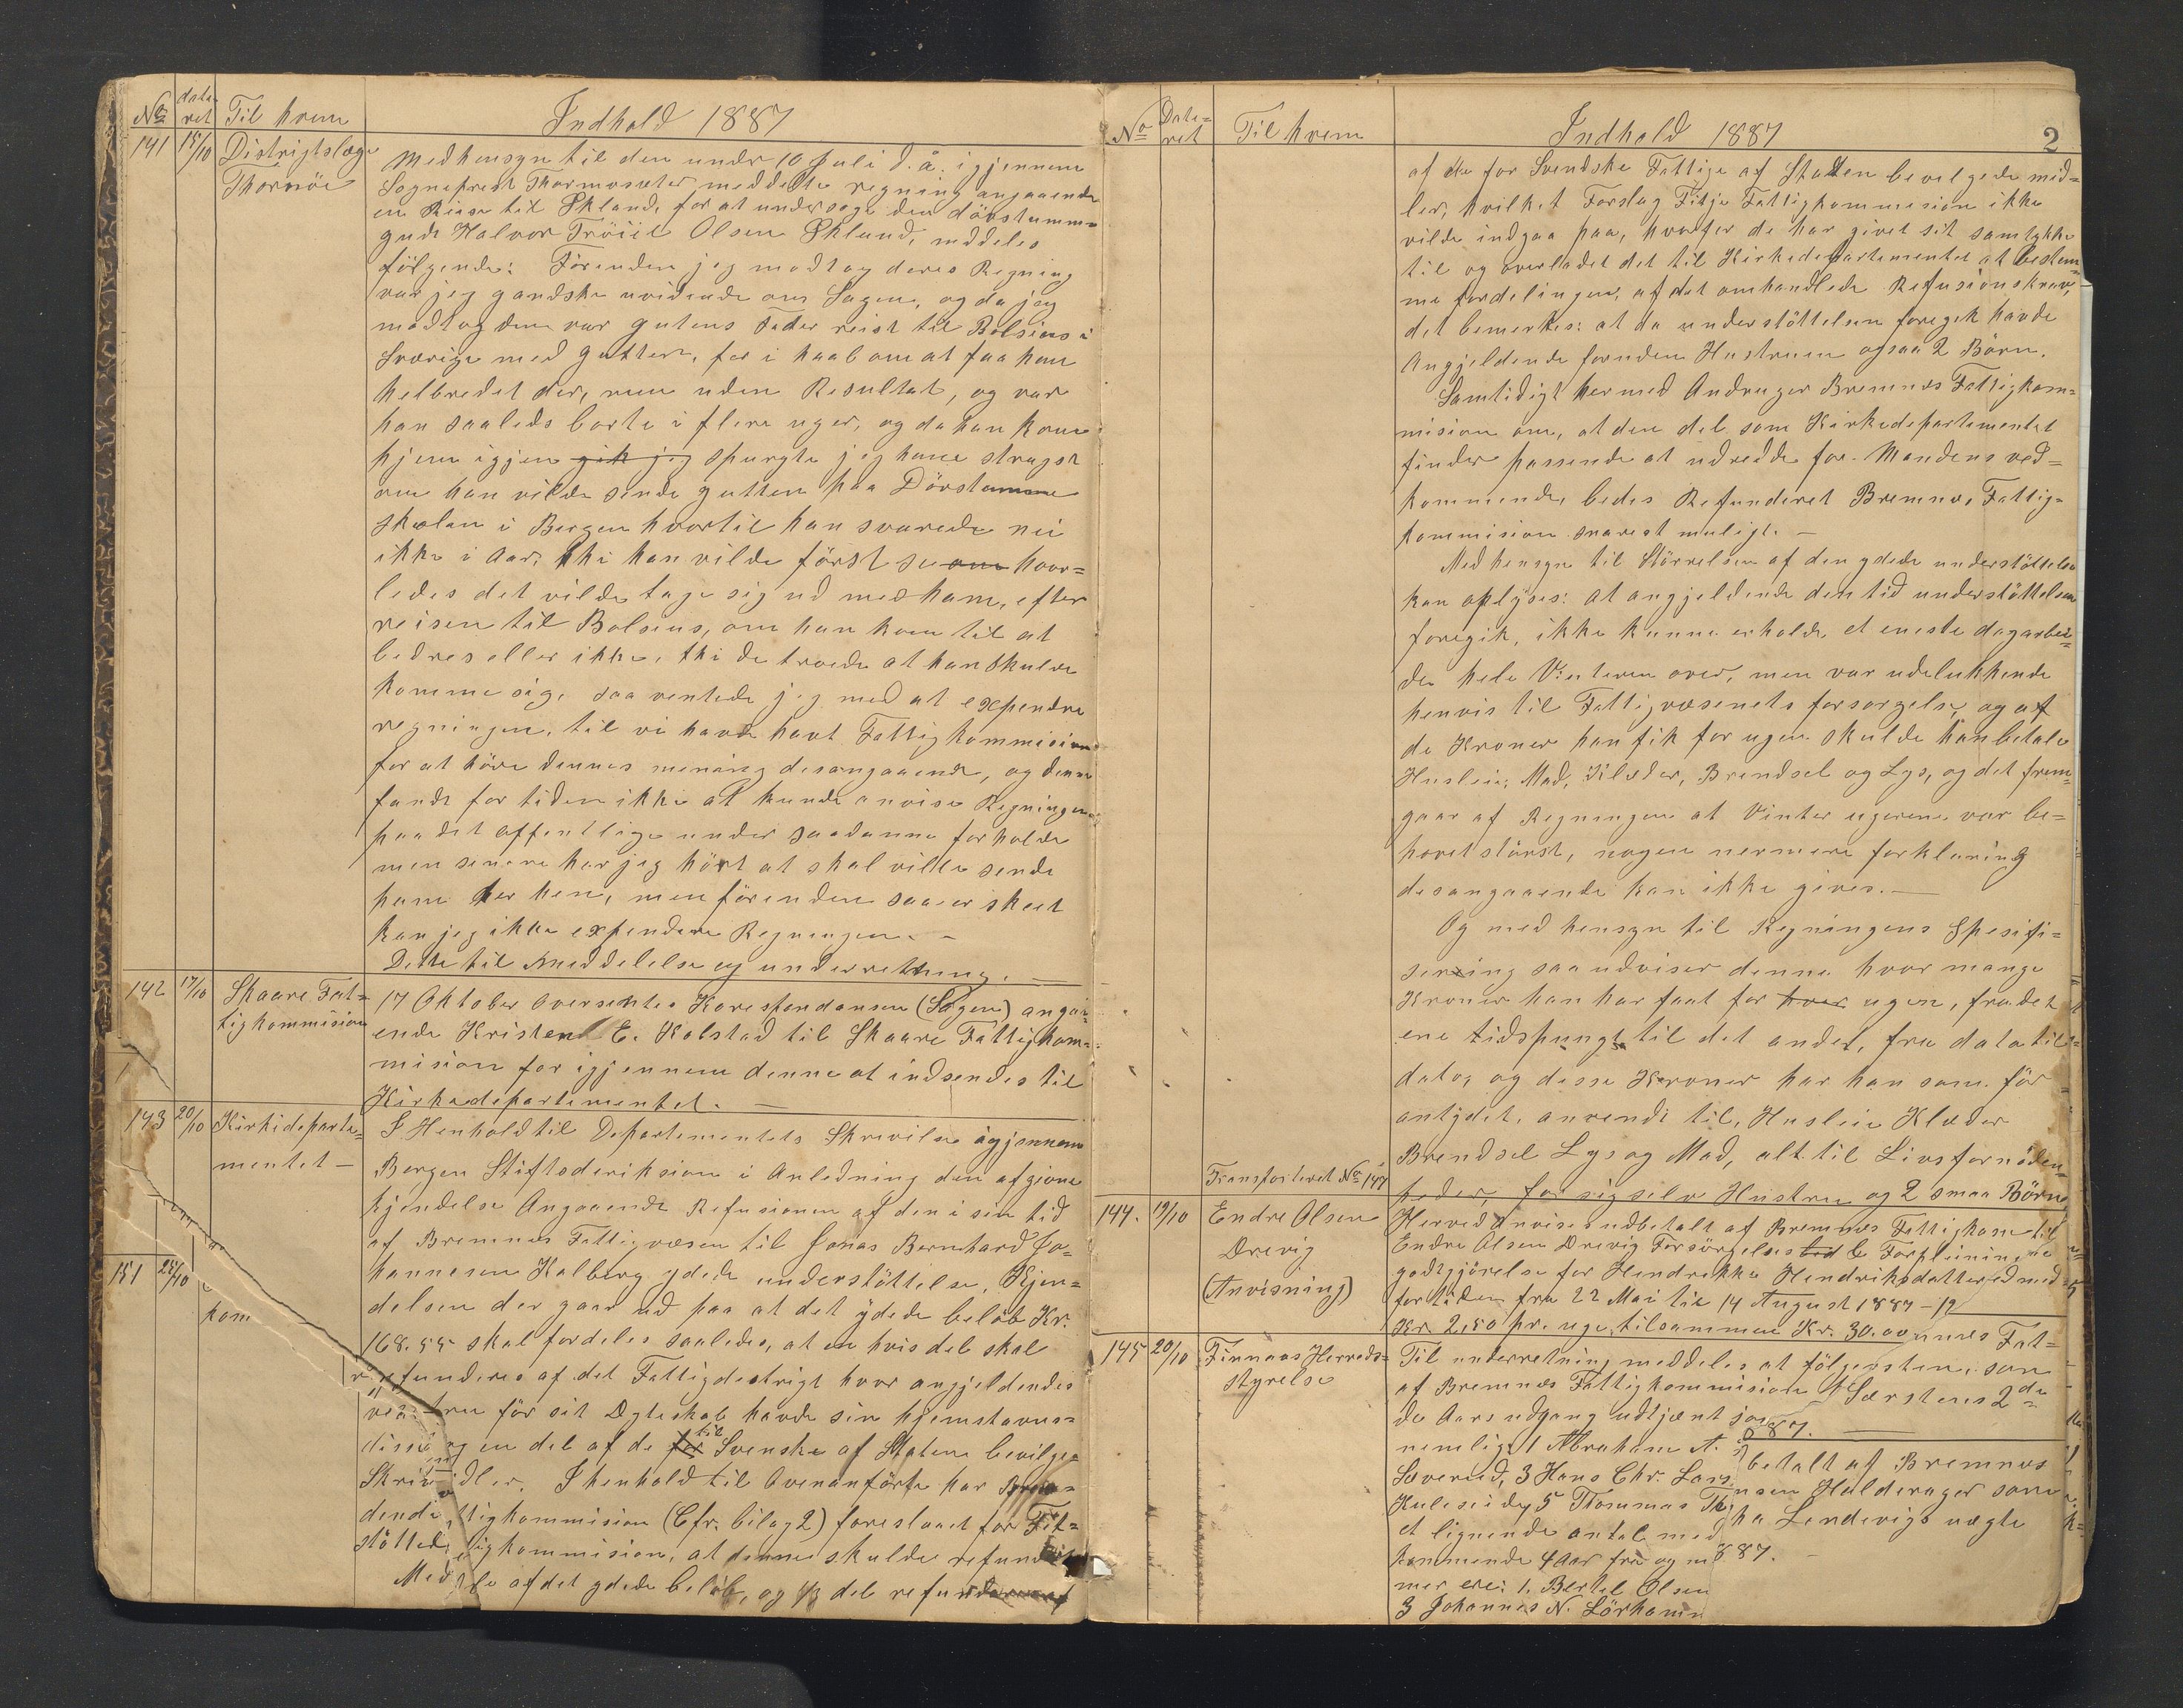 No dateret Til hvem Indhold 1887
141 15/10 Distrigtslæge
Thornöe
Medhensyn til den under 10 Juli d. å. igjennem
Sogneprest Thormosæter meddelte regning angaaende
en Reise til Økland, for at undersøge den dövstumme
gudt Halvor Tröiel Olsen Økland, meddeles
fölgende: Förenden jeg modtog deres Regning
var jeg gandske uvidende om Sagen, og da jeg
modtog den var gutens Fader reist til Bolsius i
Sverige med gutten, for i haab om at faa ham
helbredet der, men uden Resultat, og var
han saaleds borte i flere uger, og da han kom
hjem igjen gik jeg spurgte jeg ham stragst
om han vilde sende gutten paa Dövstumme
skolen i Bergen hvortil han svarede nei
ikke i Aar, thi han vilde först se om hvor=
ledes det vilde tage sig ud med ham, efter
reisen til Bolsius, om han kom til at
bedres eller ikke, thi de troede at han skulde
komme sig, saa ventede jeg med at expendre
regningen, til vi havde havt Fattigkommision
for at höre dennes mening desangaaende, og denne
fandt for tiden ikke at kunde anvise Regningen
paa det offentlige under saadanne forholde
men senere har jeg hört at skal ville sende
ham her hen, men förenden saa er skeet
kan jeg ikke expendere Regningen. -
Dette til Meddelelse og underretning. —
142 17/10 Skaare Fat=
tigkommision
17 Oktober oversentes Korespondansen (Sagen) angaa=
ende Kristen E. Kolstad til Skaare Fattigkom=
mision for igjennem denne at indsendes til
Kirkedepartementet. —
143 20/10 Kirkidepart=
mentet —
I Henhold til Departementets Skrivelse igjennem
Bergen Stiftsderiksion i Anledning den afgivne
Kjendelse Angaaende Refusionen af den i sin tid
af Bremnes Fattigvæsen til Jonas Bernhard Jo=
hannesen Kalberg ydede understöttelse. Kjen=
delsen der gaar ud paa at det ydede belöb Kr.
168.55 skal fordeles saaledes, at en hvis del skal
refunderes af det Fattigdestrigt hvor angjeldendes
tru för sit Ægteskab havde sin hjemstavns=
og en del af de for til Svenske af Staten bevilge=
dler. I henhold til Ovenanförte har Brem=
tigkommision (Cfr. bilag 2) foreslaaet for Fit=
igkommision, at denne skulde refundere
le af det ydede belöb, og 1/3 del refunderes af
151 25/10
kom
dissi
Skriv
dendi
stötted
Med
No Dateret Til hvem Indhold 1887 2
af de for Svendske Fattige af Staten bevilgede mid=
ler, hvilket Forslag Fitje Fattigkommision ikke
vilde indgaa paa, hvorfor de har givet sit samtykke
til og overladet det til Kirkedepartementet at bestem=
me fordelingen, af det omhandlede Refusionskrav,
det bemerkes: at da understöttelsen foregik havde
Angjeldende foruden Hustruen ogsaa 2 Börn.
Samtidigt hermed Andrager Bremnes Fattigkom=
mision om, at den del som Kirkedepartementet
finder passende at udredde for Mandens ved=
kommende, bedes Refunderet Bremnes Fattig=
kommision snarest muligt. —
Med hensyn til Störrelsen af den ydede understöttelse
kan oplyses: at angjeldende den tid understöttelsen
foregik, ikke kunne erholde et eneste dagarbei=
de hele Vinteren over, men var udelukkende
henvis til Fattigvæsenets forsorgelse, og af
de Kroner han fik for ugen skulde han betale
Husleie, Mad, Klæder, Brendsel og Lys, og det frem=
gaar af Regningen at Vinter ugerene var be=
hovet störst, nogen nermere forklaring
desangaaende kan ikke gives. —
Og med hensyn til Regningens Spesifi=
sering saa udviser denne hvor mange
Kroner han har faat for hver ugen, fra det
ene tidspungt til det andet, fra dato til
dato, og disse Kroner har han som för
antydet, anvendt til, Husleie Klæder
Brendsel Lys og Mad, alt til Livsfornöden=
heder, for sig selv Hustru og 2 smaa Börn
Transporteret No 144
144. 19/10 Endre Olsen
Drevig
(Anvisning)
Herved Anvises udbetalt af Bremnes Fattigkasse til
Endre Olsen Drevig Forsörgelses
godtgjörelse for Hendrikke Hendriksdatter
for tiden fra 22 Mai til 14 August 1887 - 12
Kr 2,50 pr. uge, tilsammen Kr. 30.00
145 20/10 Finnaas Herreds=
styrelse
Til underretning meddeles at fölgersten, som
af Bremnes Fattigkommision
de Aars udgang udtjænt
nemlig: 1 Abraham A.
Soverud, 3 Hans Chr. Lars
Kuleseid, 5 Thommas Th
et lignende antal med
kommende 4 Aar fra og m
mer ere: 1. Bertel Olsen
3 Johannes N. Lörhamm
887.
betalt af Bremnes
nsen Halderager som
ha Lendevigs vægte
887.